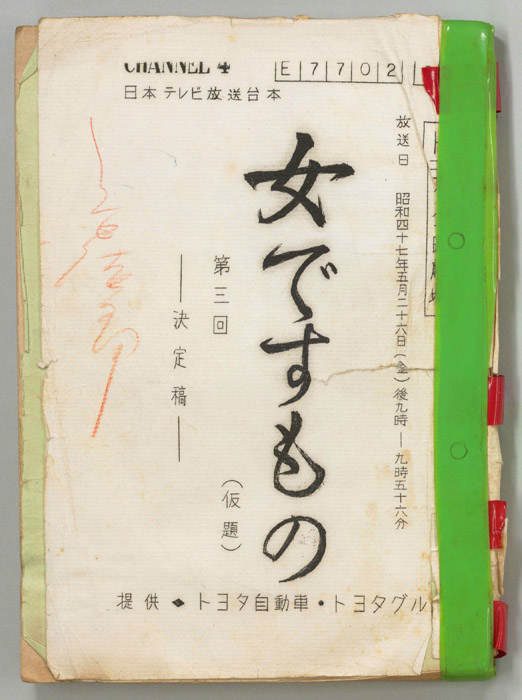 CHANNEL 4
E7702
日本テレビ放送台本
放送日 昭和四十七年五月二十六日(金)後九時―九時五十六分
女ですもの
(仮題)
第三回
―決定稿―
提供◆トヨタ自動車・トヨタグル